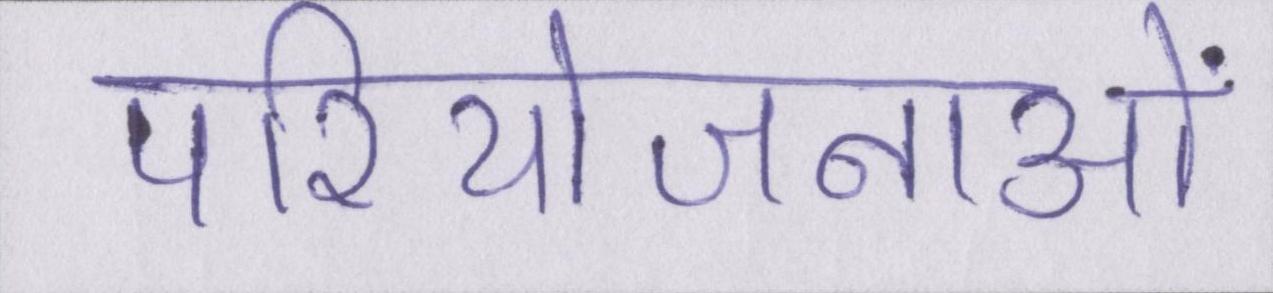 परियोजनाओं